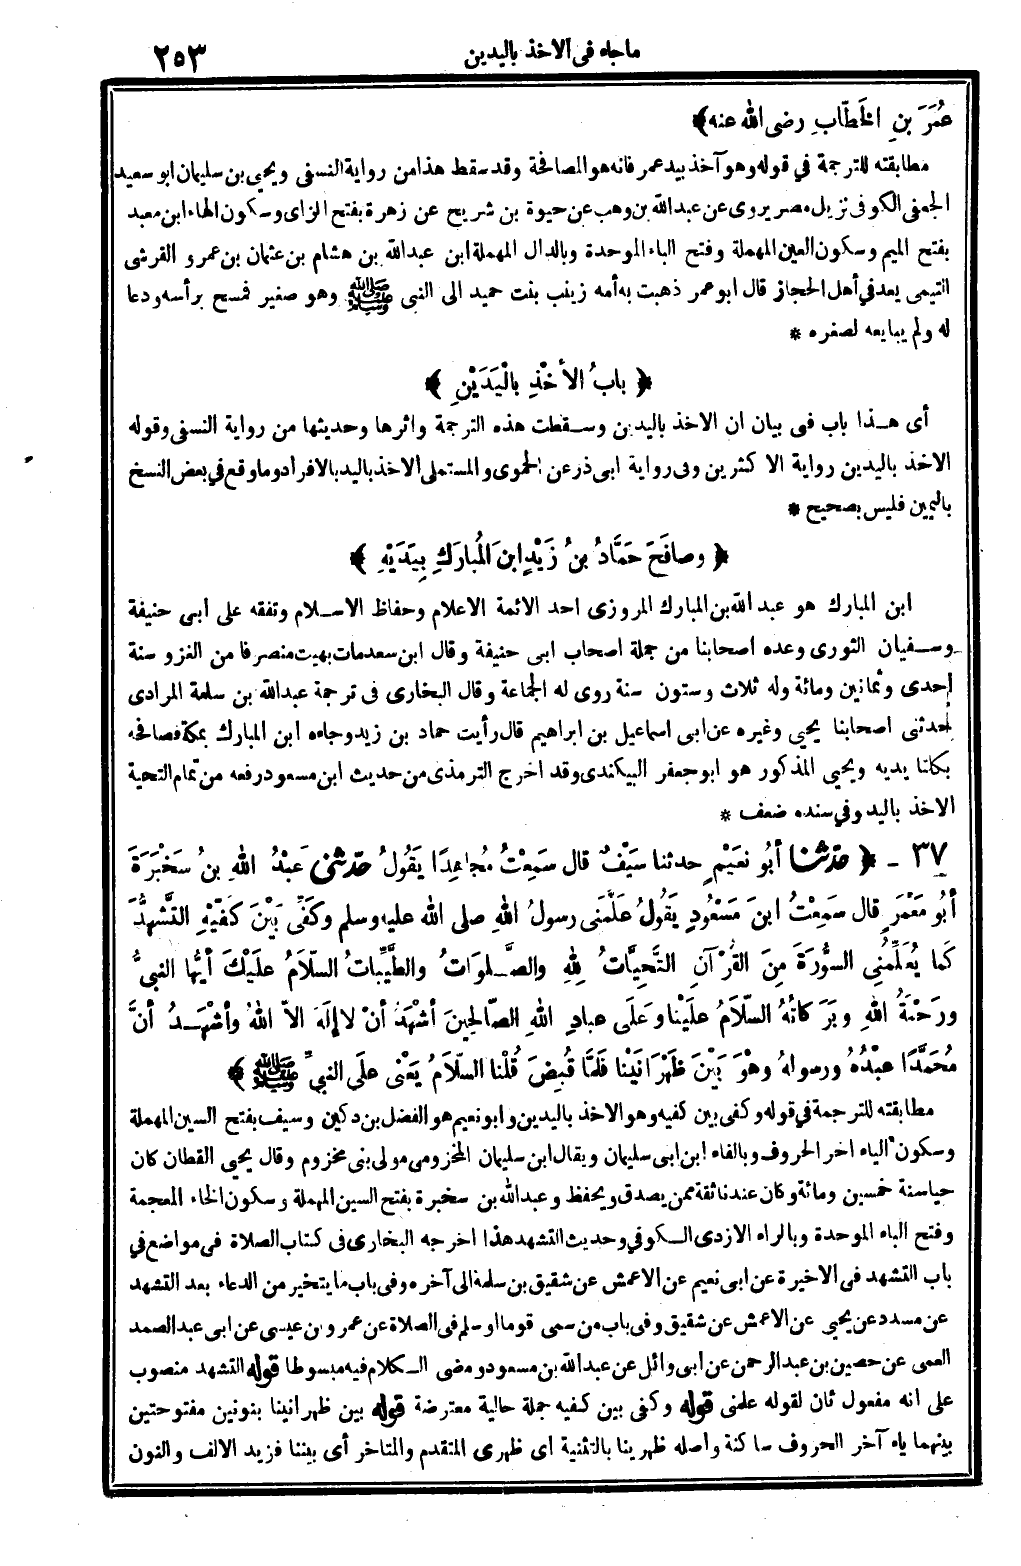 ما جاء فى الاخذ باليدين ٢٥٣
عُمَرَ بنِ الخَطَّابِ رضى الله عنه﴾
مطابقته للترجمة في قوله وهو آخذ بيد عمر فانه هو المصافحة وقد سقط هذا من رواية النسفى ويحيى بن سليمان ابو سعيد
الجعفى الكوفى نزيل مصر يروى عن عبدالله بن وهب عن حيوة بن شريح عن زهرة بفتح الزاى وسكون الهاء ابن معبد
بفتح الميم وسكون العين المهملة وفتح الباء الموحدة وبالدال المهملة ابن عبدالله بن هشام بن عثمان بن عمرو القرشى
التيمى يعد في أهل الحجاز قال ابو عمر ذهبت به أمه زينب بنت حميد الى النبى ﷺ وهو صغير فمسح برأسه ودعا
له ولم يبايعه لصغره *
﴿ بابُ الأخْذِ بالْيَدَيْنِ ﴾
أى هـذا باب فى بيان ان الاخذ باليدين وسـقطت هذه الترجمة واثرها وحديثها من رواية النسفى وقوله
الاخذ باليدين رواية الاكثرين وفى رواية ابى ذر عن الحموى والمستملى الاخذ باليد بالافراد وما وقع في بعض النسخ
باليمين فليس بصحيح *
﴿ وصافَحَ حَمَّادُ بنُ زَيْدٍ ابنَ المُبارَكِ بِيَدَيْهِ ﴾
ابن المبارك هو عبد الله بن المبارك المروزى احد الائمة الاعلام وحفاظ الاسـلام وتفقه على أبى حنيفة
وسـفيان الثورى وعده اصحابنا من جملة اصحاب ابى حنيفة وقال ابن سعد مات بهيت منصرفا من الغزو سنة
إحدى وثمانين ومائة وله ثلاث وستون سنة روى له الجماعة وقال البخارى فى ترجمة عبدالله بن سلمة المرادى
حدثنى اصحابنا يحيى وغيره عن ابى اسماعيل بن ابراهيم قال رأيت حماد بن زيد وجاءه ابن المبارك بمكة فصافحه
بكلتا يديه ويحيى المذكور هو ابو جعفر البيكندى وقد اخرج الترمذى من حديث ابن مسعود رفعه من تمام التحية
الاخذ باليد وفي سنده ضعف *
٣٧ ـ ﴿ حدّثنا أبُو نعَيْمٍ حدثنا سَيْفٌ قال سَمِعْتُ مُجاهِدًا يَقُولُ حدّثنى عَبْدُ اللهِ بنُ سَخْبَرَةَ
أبُو مَعْمَرٍ قال سَمِعْتُ ابنَ مَسْعُودٍ يَقُولُ عَلَّمَنى رسولُ اللهِ صلى الله عليه وسلم وكَفِّى بَيْنَ كَفَّيْهِ التَّشَهُّدَ
كَما يُعَلِّمُنِى السُّورَةَ مِنَ القُرْآنِ التَّحِيَّاتُ لِلهِ والصَّـلَوَاتُ والطَّيِّباتُ السّلاَمُ علَيْكَ أيُّها النبىُّ
ورَحْمَةُ اللهِ وبَرَكاتُهُ السّلاَمُ علَيْنا وعَلَى عبادِ اللهِ الصّالِحِينَ أشْهَدُ أنْ لا إلَهَ الاّ اللهُ وأشْهَـدُ أنَّ
مُحَمَّدًا عبْدُهُ ورسولهُ وهْوَ بَيْنَ ظَهْرَانَيْنا فَلَمَّا قُبِضَ قُلْنا السّلاَمُ يَعْنى علَى النبىِّ ﷺ ﴾
مطابقته للترجمة في قوله وكفى بين كفيه وهو الاخذ باليدين وابو نعيم هو الفضل بن دكين وسيف بفتح السين المهملة
وسكون الياء اخر الحروف وبالفاء ابن ابى سليمان ويقال ابن سليمان المخزومى مولى بنى مخزوم وقال يحيى القطان كان
حيا سنة خمسين ومائة وكان عندنا ثقة ممن يصدق ويحفظ وعبدالله بن سخبرة بفتح السين المهملة وسكون الخاء المعجمة
وفتح الباء الموحدة وبالراء الازدى الـكوفي وحديث التشهد هذا اخرجه البخارى فى كتاب الصلاة فى مواضع في
باب التشهد فى الاخيرة عن ابى نعيم عن الاعمش عن شقيق بن سلمة الى آخره وفى باب ما يتخير من الدعاء بعد التشهد
عن مسدد عن يحيى عن الاعمش عن شقيق وفى باب من سمى قوما او سلم فى الصلاة عن عمرو بن عيسى عن ابى عبد الصمد
العمى عن حصين بن عبد الرحمن عن ابى وائل عن عبدالله بن مسعود ومضى الـكلام فيه مبسوطا قوله التشهد منصوب
على انه مفعول ثان لقوله علمنى قوله وكفى بين كفيه جملة حالية معترضة قوله بين ظهرانينا بنونين مفتوحتين
بينهما ياء آخر الحروف ساكنة واصله ظهرينا بالتثنية اى ظهرى المتقدم والمتاخر أى بيننا فزيد الالف والنون